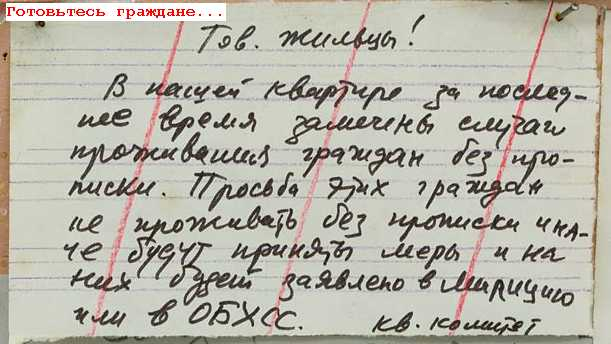 Готовьтесь граждане...
Тов. жильцы!
В нашей квартире за послед-
нее время замечены случаи
проживания граждан без про-
писки. Просьба этих граждан
не проживать без прописки ина-
че будут приняты меры и на
них будет заявлено в милицию
или в ОБХСС. кв. комитет